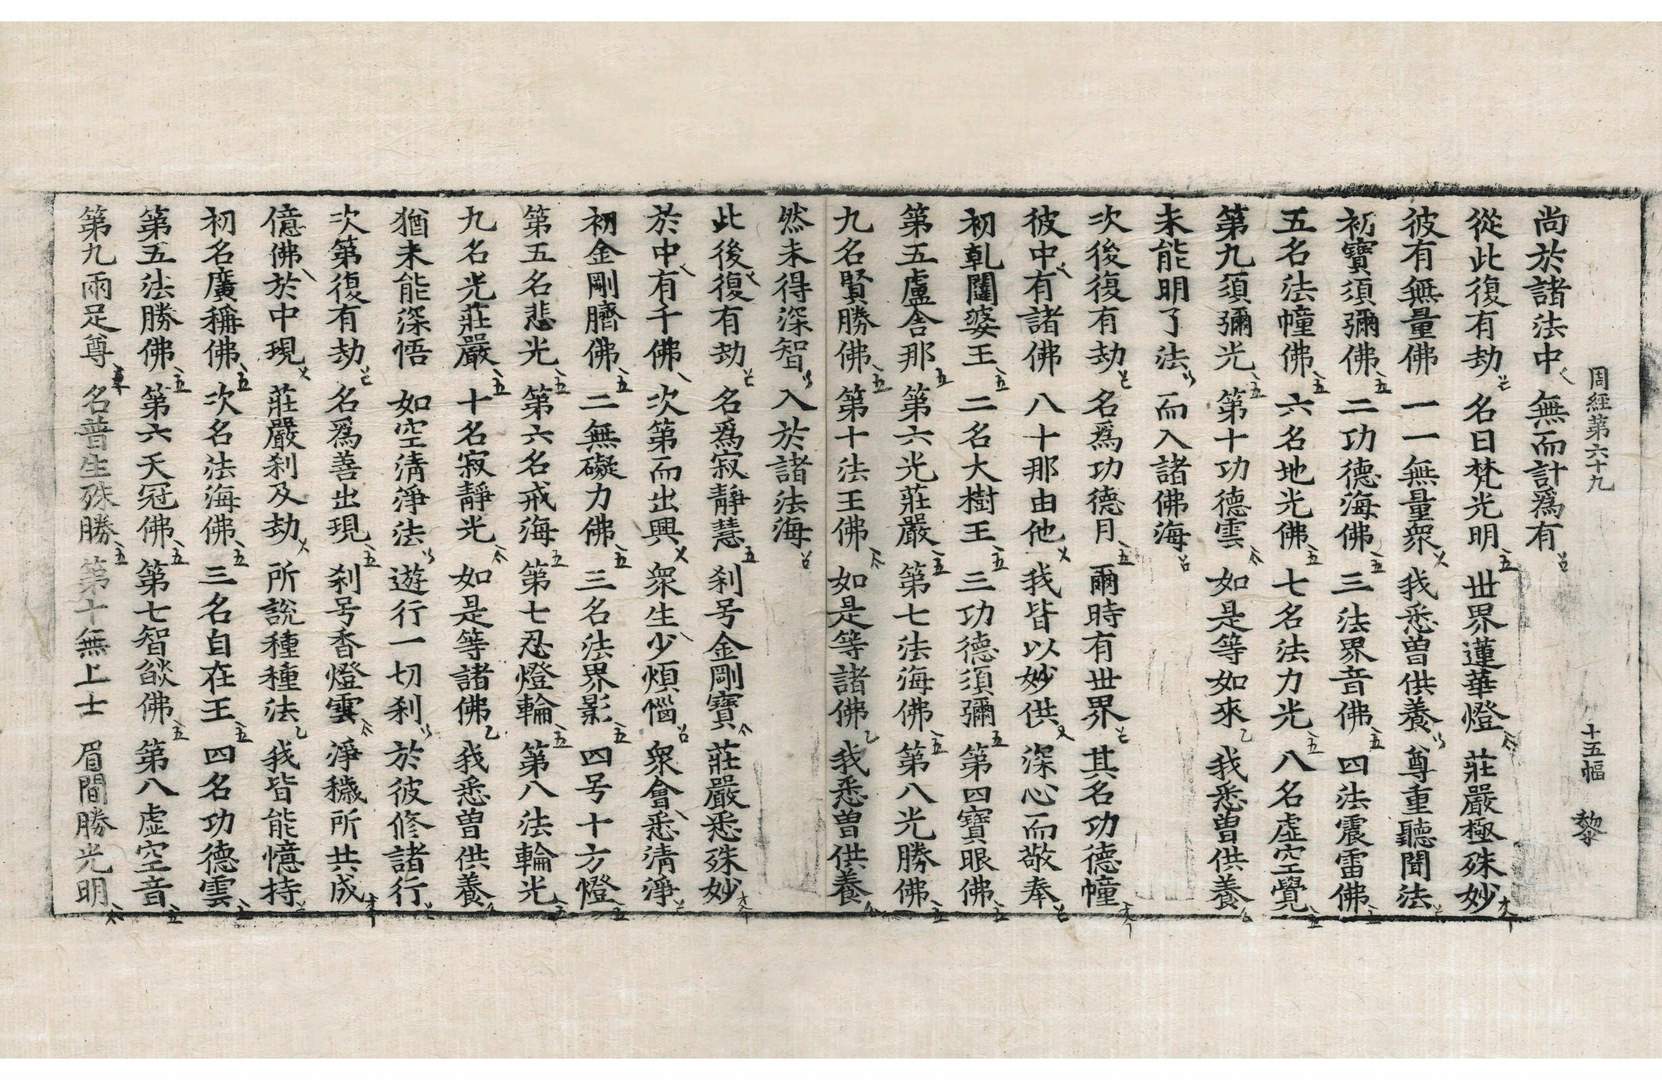 周經第六十九 十五幅 黎
尚於諸法中 無而計為有
從此復有劫 名曰梵光明 世界蓮華燈 莊嚴極殊妙
彼有無量佛 一一無量衆 我悉曾供養 尊重聽聞法
初寶須彌佛 二功德海佛 三法界音佛 四法震雷佛
五名法幢佛 六名地光佛 七名法力光 八名虛空覺
第九須彌光 第十功德雲 如是等如來 我悉曾供養
未能明了法 而入諸佛海
次後復有劫 名爲功德月 爾時有世界 其名功德幢
彼中有諸佛 八十那由他 我皆以妙供 深心而敬奉
初乹闥婆王 二名大樹王 三功德須彌 第四寶眼佛
第五盧舍那 第六光莊嚴 第七法海佛 第八光勝佛
九名賢勝佛 第十法王佛 如是等諸佛 我悉曾供養
然未得深智 入於諸法海
此後復有劫 名爲寂靜慧 刹号金剛寶 莊嚴悉殊妙
於中有千佛 次第而出興 衆生少煩惱 衆會悉清淨
初金剛臍佛 二無礙力佛 三名法界影 四号十方燈
第五名悲光 第六名戒海 第七忍燈輪 第八法輪光
九名光莊嚴 十名寂靜光 如是等諸佛 我悉曾供養
猶未能深悟 如空清淨法 遊行一切刹 於彼修諸行
次第復有劫 名爲善出現 刹号香燈雲 淨穢所共成
億佛於中現 莊嚴刹及劫 所說種種法 我皆能憶持
初名廣稱佛 次名法海佛 三名自在王 四名功德雲
第五法勝佛 第六天冠佛 第七智燄佛 第八虛空音
第九兩足尊 名普生殊勝 第十無上士 眉間勝光明